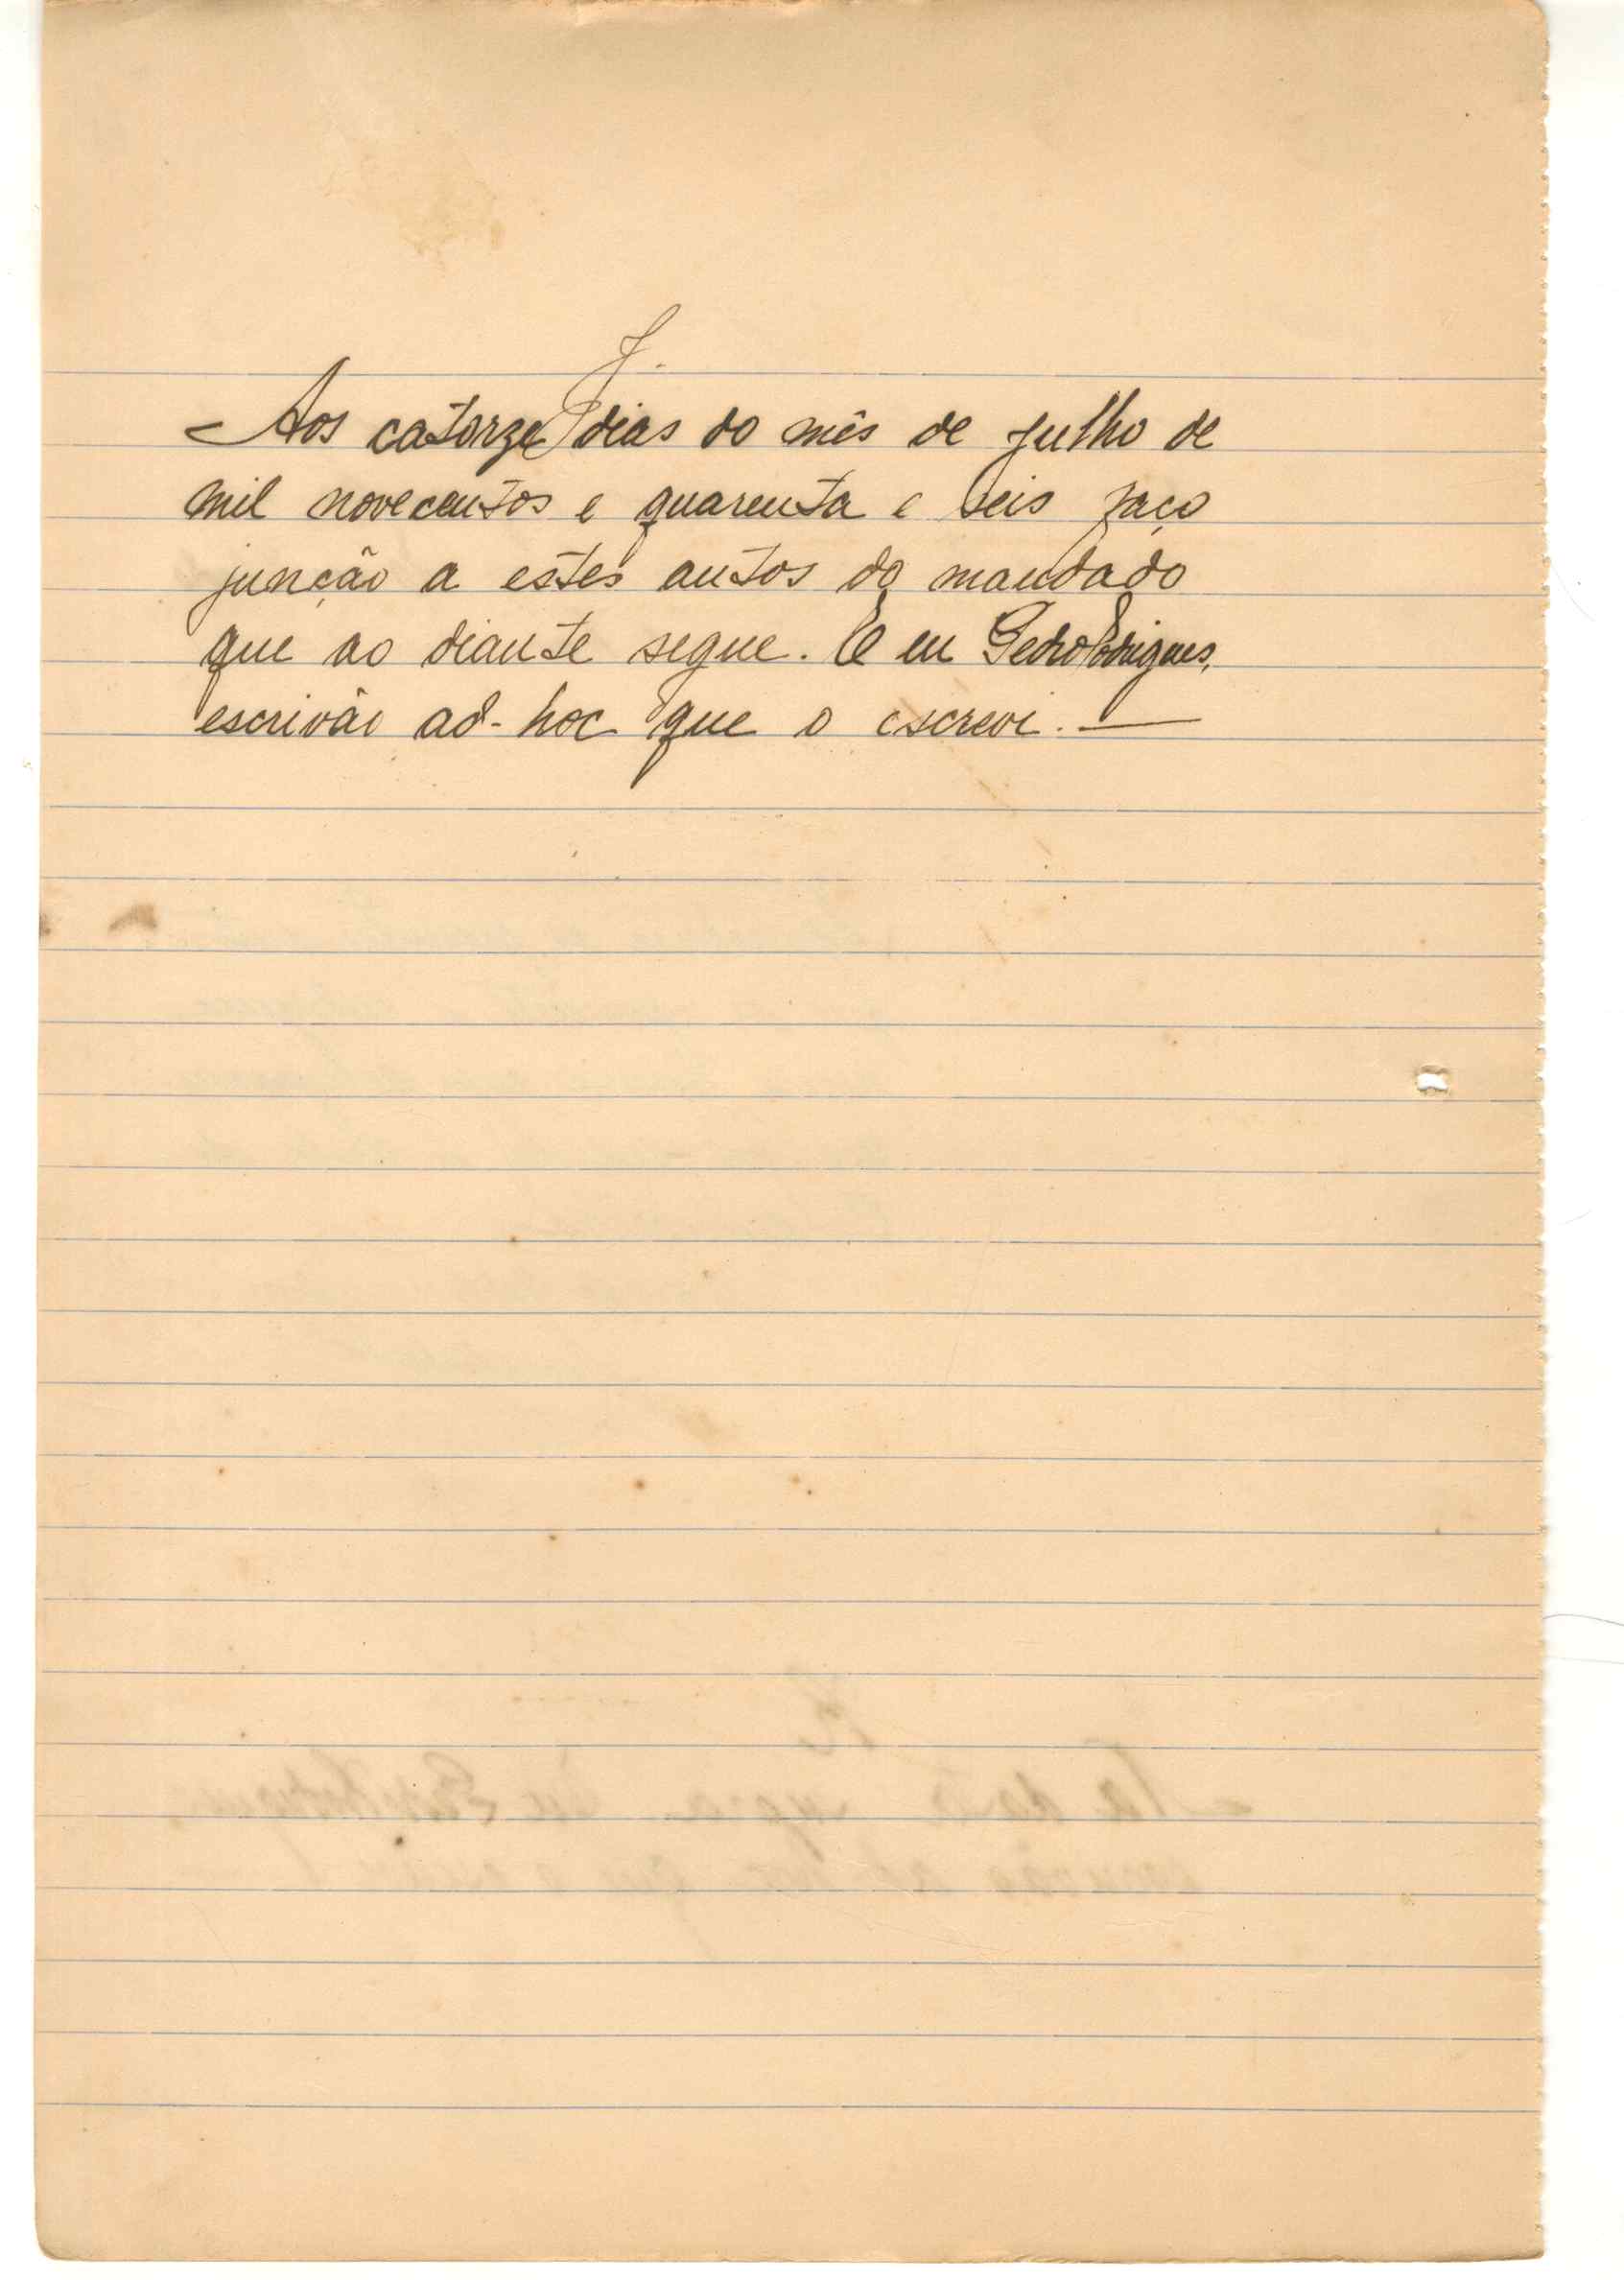 J.
Aos catorze dias do mês de julho de
mil novecentos e quarenta e seis faço
junção a estes autos do mandado
que ao diante segue. E eu Pedro Rodrigues,
escrivão ad-hoc que o escrevi. —